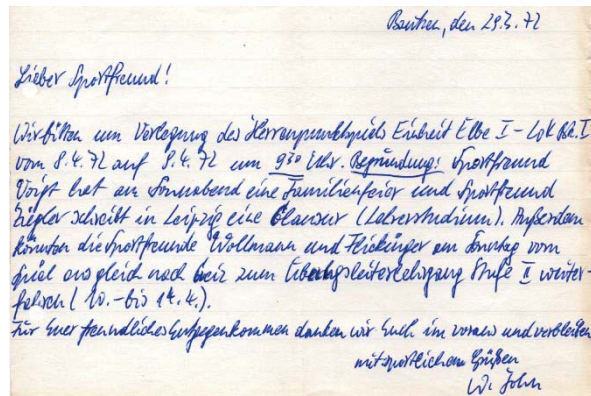 Bautzen, den 29.3.72
Lieber Sportfreund!
Wir bitten um Verlegung des Herrenpunktspiels Einheit Elbe I - Lok Btz. I
vom 8.4.72 auf 9.4.72 um 9³⁰ Uhr. Begründung: Sportfreund
Voigt hat am Sonnabend eine Familienfeier und Sportfreund
Ziegler schreibt in Leipzig eine Klausur (Lehrerstudium). Außerdem
könnten die Sportfreunde Wollmann und Flickinger am Sonntag vom
Spiel aus gleich nach zum Übungsleiterlehrgang Stufe II weiter-
fahren (10.-bis 14.4.).
Für Euer freundliches Entgegenkommen danken wir Euch im voraus und verbleiben
mit sportlichen Grüßen
W. John